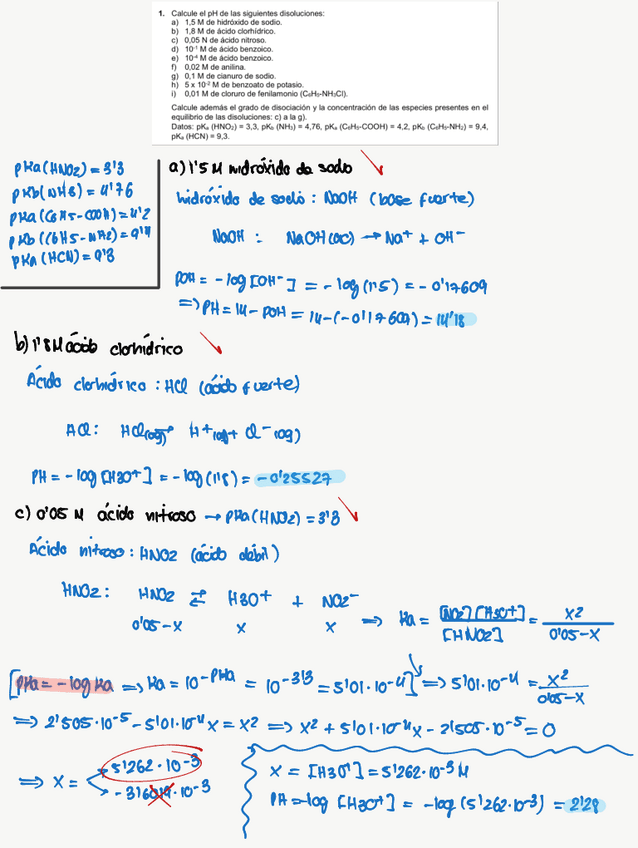 1. Calcule el pH de las siguientes disoluciones:
a) 1,5 M de hidróxido de sodio.
b) 1,8 M de ácido clorhídrico.
c) 0,05 N de ácido nitroso.
d) 10⁻¹ M de ácido benzoico.
e) 10⁻⁴ M de ácido benzoico.
f) 0,02 M de anilina.
g) 0,1 M de cianuro de sodio.
h) 5 x 10⁻² M de benzoato de potasio.
i) 0,01 M de cloruro de fenilamonio (C₆H₅-NH₃Cl).
Calcule además el grado de disociación y la concentración de las especies presentes en el
equilibrio de las disoluciones: c) a la g).
Datos: pKₐ (HNO₂) = 3,3, pKb (NH₃) = 4,76, pKₐ (C₆H₅-COOH) = 4,2, pKb (C₆H₅-NH₂) = 9,4,
pKₐ (HCN) = 9,3.
pKa(HNO2) = 3'3
pKb(NH3) = 4'76
pKa(C6H5-COOH) = 4'2
pKb(C6H5-NH2) = 9'4
pKa(HCN) = 9'3
a) 1'5 M hidróxido de sodio
hidróxido de sodio : NaOH (base fuerte)
NaOH : NaOH(ac) → Na⁺ + OH⁻
POH = -log [OH⁻] = -log (1'5) = -0'17609
⇒ PH = 14 - POH = 14 - (-0'17609) = 14'18
b) 1'8 M ácido clorhídrico
Ácido clorhídrico : HCl (ácido fuerte)
HCl : HCl(aq) → H⁺(aq) + Cl⁻(aq)
PH = -log [H3O⁺] = -log (1'8) = -0'25527
c) 0'05 M ácido nitroso → PKa(HNO2) = 3'3
Ácido nitroso : HNO2 (ácido débil)
HNO2 : HNO2 ⇌ H3O⁺ + NO2⁻ ⇒ Ka = [NO2⁻][H3O⁺] / [HNO2] = X² / 0'05-X
0'05-X X X
[PKa = -log Ka ⇒ Ka = 10⁻ᴾᴷᵃ = 10⁻³'³ = 5'01·10⁻⁴] ⇒ 5'01·10⁻⁴ = X² / 0'05-X
⇒ 2'505·10⁻⁵ - 5'01·10⁻⁴ X = X² ⇒ X² + 5'01·10⁻⁴ X - 2'505·10⁻⁵ = 0
⇒ X = 5'262·10⁻³
X = [H3O⁺] = 5'262·10⁻³ M
PH = -log [H3O⁺] = -log (5'262·10⁻³) = 2'28